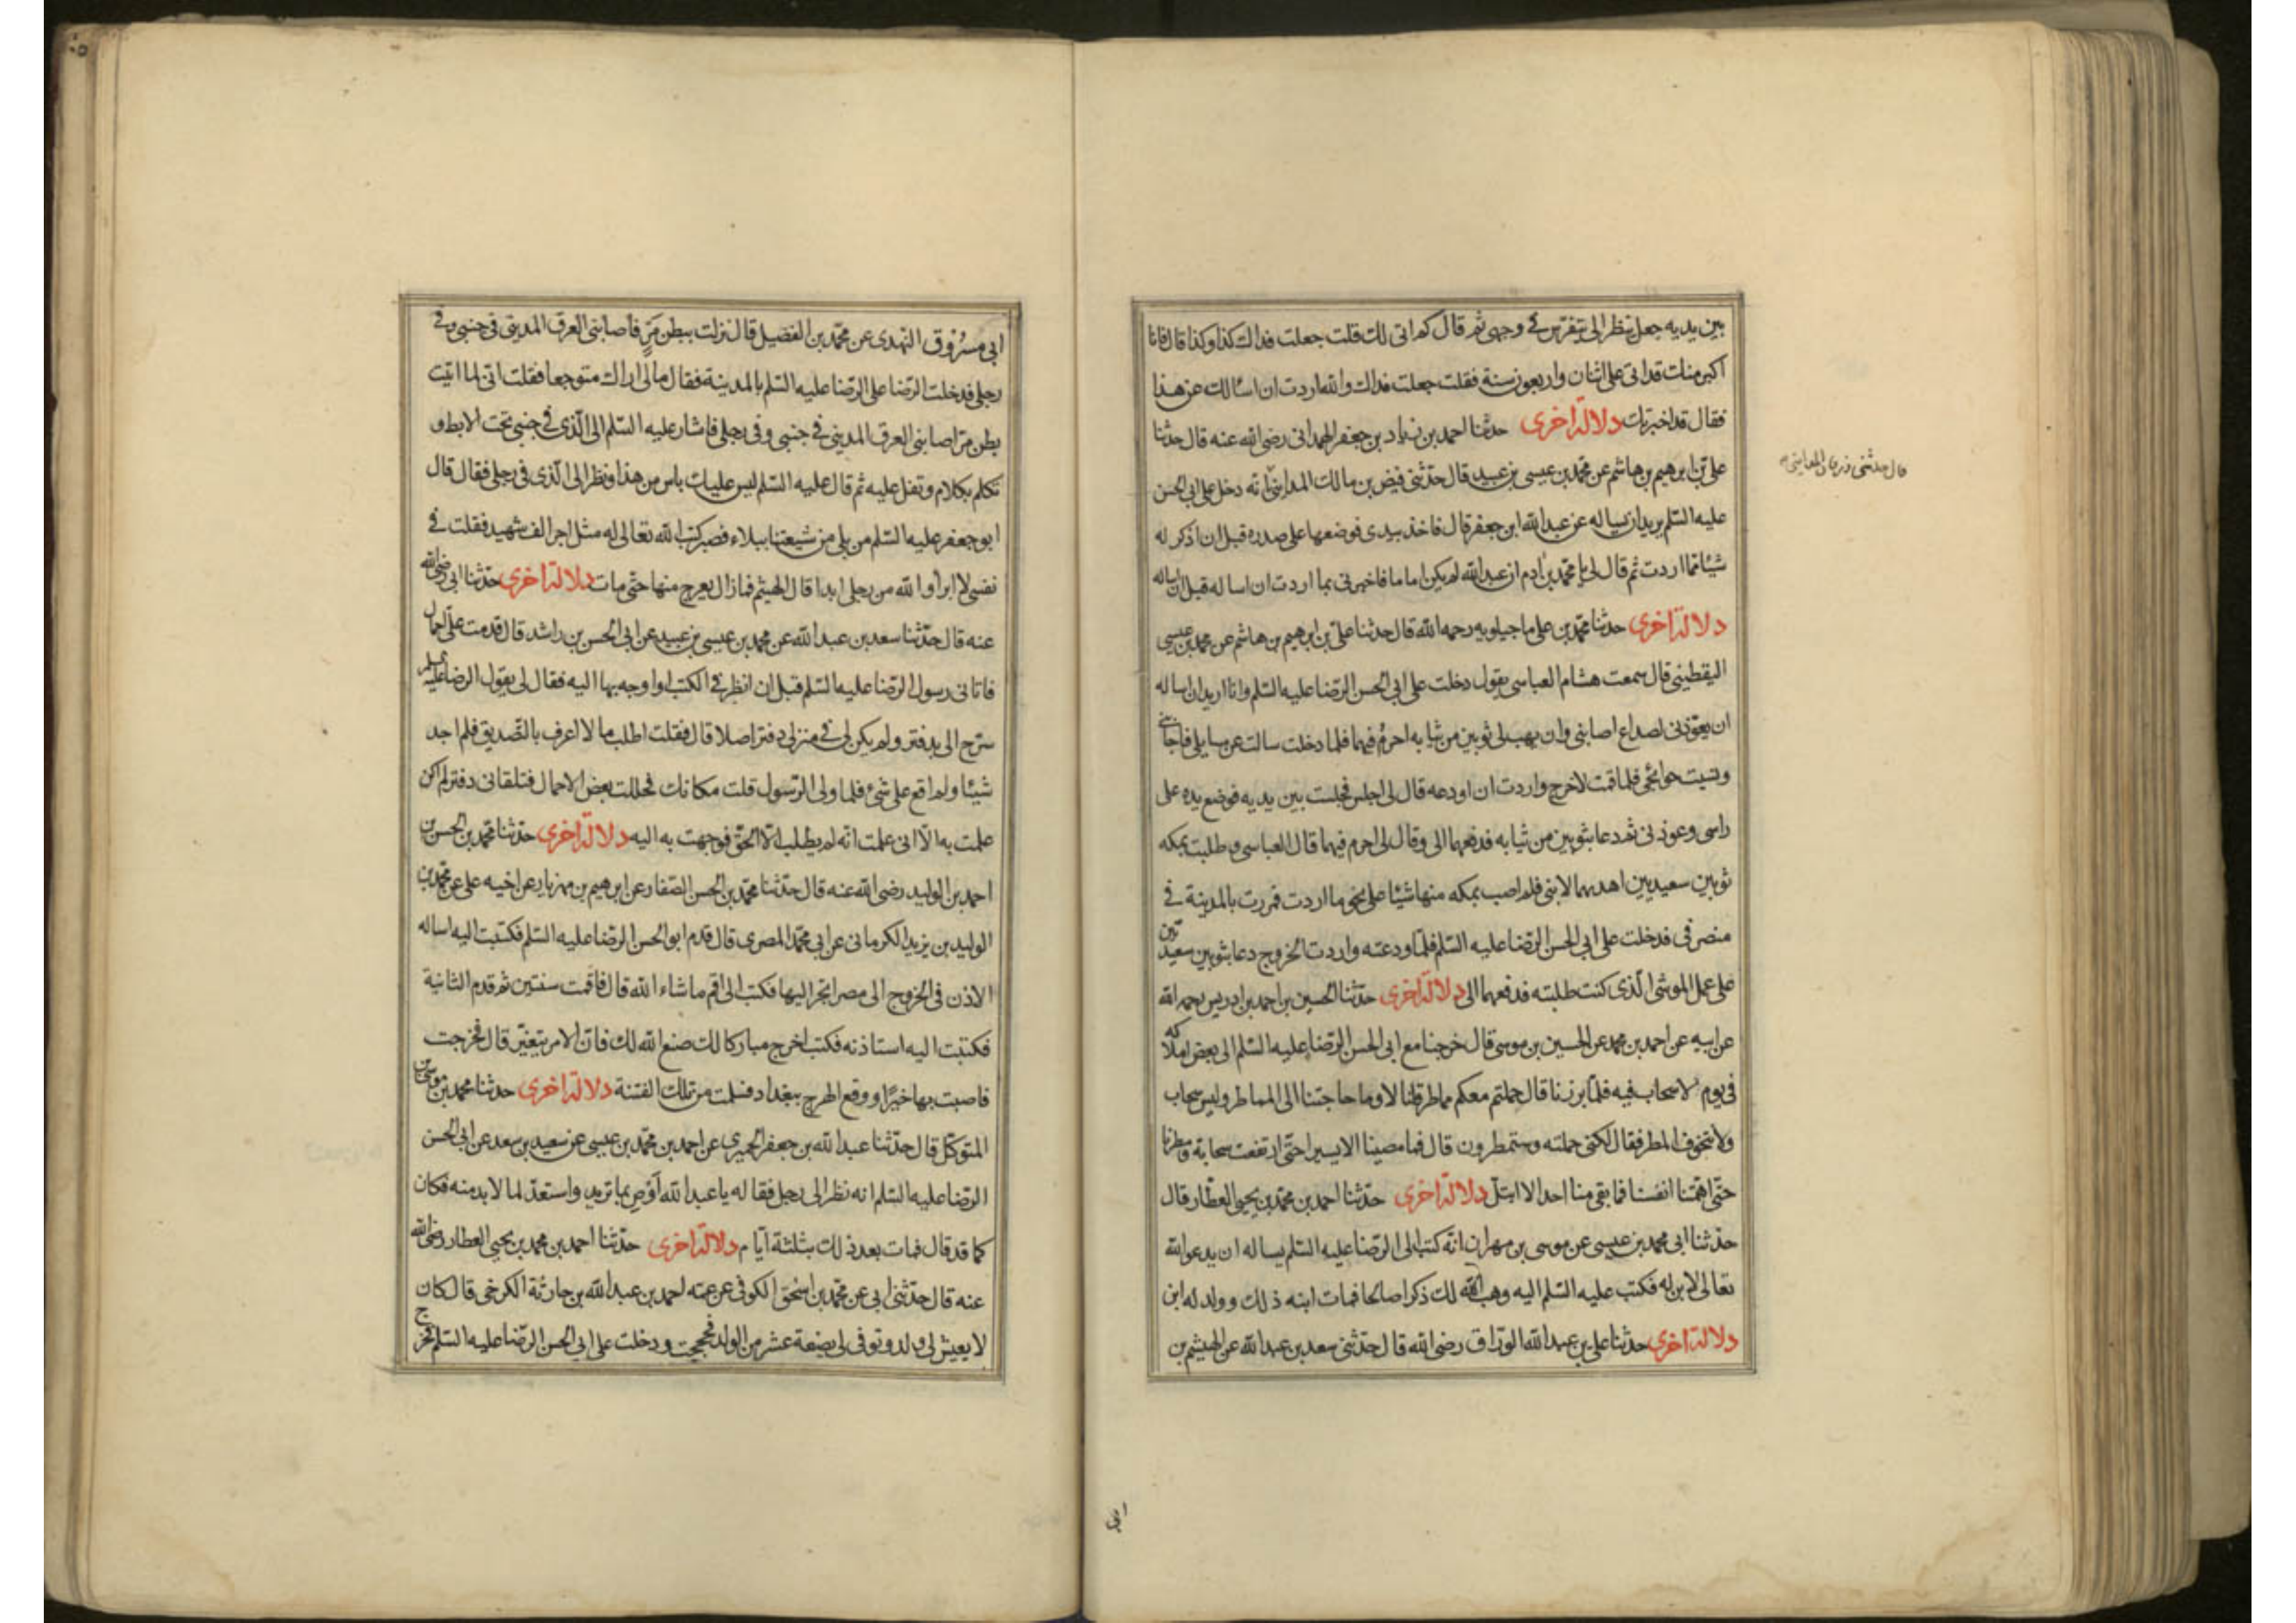 بين يديه جعل ينظر الى يتفرس في وجهى ثم قال كم اتى لك قلت جعلت فداك كذا وكذا قال فانا
اكبر منك قد اتى على اثنان واربعون سنة فقلت جعلت فداك والله اردت ان اسالك عن هذا
فقال قد اخبرتك دلالة اخرى حدثنا احمد بن زياد بن جعفر الهمدانى رضى الله عنه قال حدثنا
على بن ابرهيم بن هاشم عن محمد بن عيسى بن عبيد قال حدثنى فيض بن مالك المداينى انه دخل على ابى الحسن
قال حدثنى المداينى
عليه السلم يريد ان يساله عن عبد الله ابن جعفر قال فاخذ بيدى فوضعها على صدره قبل ان اذكر له
شيئا مما اردت ثم قال لى يا محمد بن ادم ان عبد الله لم يكن اماما فاخبرنى بما اردت ان اساله قبل ان اساله
دلالة اخرى حدثنا محمد بن على ماجيلويه رحمه الله قال حدثنا على بن ابرهيم بن هاشم عن محمد بن عيسى
اليقطينى قال سمعت هشام العباسى يقول دخلت على ابى الحسن الرضا عليه السلم وانا اريد ان اساله
ان يعوذنى لصداع اصابنى وان يهب لى ثوبين من ثيابه احرم فيهما فلما دخلت سالت عن مسايلى فاجابنى
ونسيت حوائجى فلما قمت لاخرج واردت ان اودعه قال لى اجلس فجلست بين يديه فوضع يده على
راسى وعوذنى ثم دعا بثوبين من ثيابه فدفعهما الى وقال لى احرم فيهما قال العباسى وطلبت بمكه
ثوبين سعيديين اهديهما لابنى فلم اصب بمكه منها شيئا على نحو ما اردت فمررت بالمدينة في
منصرفى فدخلت على ابى الحسن الرضا عليه السلم فلما ودعته واردت الخروج دعا بثوبين سعيديين
على عمل الموشى الذى كنت طلبته فدفعهما الى دلالة اخرى حدثنا الحسين بن احمد بن ادريس رحمه الله
عن ابيه عن احمد بن محمد عن الحسين بن موسى قال خرجنا مع ابى الحسن الرضا عليه السلم الى بعض املاكه
فى يوم لا سحاب فيه فلما برزنا قال حملتم معكم مماطر قلنا لا وما حاجتنا الى المماطر وليس سحاب
ولا نتخوف المطر فقال لكنى حملته وستمطرون قال فما مضينا الا يسيرا حتى ارتفعت سحابة ومطرنا
حتى اهمتنا انفسنا فما بقى منا احد الا ابتل دلالة اخرى حدثنا احمد بن محمد بن يحيى العطار قال
حدثنا ابى محمد بن عيسى عن موسى بن مهران انه كتب الى الرضا عليه السلم يساله ان يدعو الله
تعالى لابن له فكتب عليه السلم اليه وهب الله لك ذكرا صالحا فمات ابنه ذلك وولد له ابن
دلالة اخرى حدثنا على بن عبد الله الوراق رضى الله قال حدثنى سعد بن عبد الله عن الهيثم بن
ابى مسروق النهدى عن محمد بن الفضيل قال نزلت ببطن مر فاصابنى العرق المدينى فى جنبى وفى
رجلى فدخلت الرضا على الرضا عليه السلم بالمدينة فقال مالى اراك متوجعا فقلت انى لما اتيت
بطن مر اصابنى العرق المدينى في جنبى وفى رجلى فاشار عليه السلم الى الذى في جنبى تحت الابط و
تكلم بكلام وتفل عليه ثم قال عليه السلم ليس عليك باس من هذا ونظر الى الذى فى رجلى فقال قال
ابو جعفر عليه السلم من بلى من شيعتنا ببلاء فصبر كتب الله تعالى له مثل اجر الف شهيد فقلت في
نفسى لا ابرأ والله من رجلى ابدا قال الهيثم فما زال يعرج منها حتى مات دلالة اخرى حدثنا ابى رضى الله
عنه قال حدثنا سعد بن عبد الله عن محمد بن عيسى بن عبيد عن ابى الحسن بن راشد قال قدمت على احمال
فاتانى رسول الرضا عليه السلم قبل ان انظر في الكتب او اوجه بها اليه فقال لى يقول الرضا عليه السلم
سرح الى بدفتر ولم يكن لى في منزلى دفتر اصلا قال فقلت اطلب ما لا اعرف بالتصديق فلم اجد
شيئا ولم اقع على شئ فلما ولى الرسول قلت مكانك فحللت بعض الاحمال فتلقانى دفتر لم اكن
علمت به الا انى علمت انه لم يطلب الا الحق فوجهت به اليه دلالة اخرى حدثنا محمد بن الحسن بن
احمد بن الوليد رضى الله عنه قال حدثنا محمد بن الحسن الصفار عن ابرهيم بن مهزيار عن اخيه على عن محمد بن
الوليد بن يزيد الكرمانى عن ابى محمد المصرى قال قدم ابو الحسن الرضا عليه السلم فكتبت اليه اساله
الاذن فى الخروج الى مصر اتجر اليها فكتب الى اقم ما شاء الله قال فاقمت سنتين ثم قدم الثانية
فكتبت اليه استاذنه فكتب اخرج مباركا لك صنع الله لك فان الامر يتغير قال فخرجت
فاصبت بها خيرا ووقع الهرج ببغداد فسلمت من تلك الفتنة دلالة اخرى حدثنا محمد بن موسى بن
المتوكل قال حدثنا عبد الله بن جعفر الحميرى عن احمد بن محمد بن عيسى عن سعيد بن سعد عن ابى الحسن
الرضا عليه السلم انه نظر الى رجل فقا له يا عبد الله أوص بما تريد واستعد لما لا بد منه فكان
كما قد قال فمات بعد ذلك بثلثة ايام دلالة اخرى حدثنا احمد بن محمد بن يحيى العطار رضى الله
عنه قال حدثنى ابى عن محمد بن اسحق الكوفى عن عمه احمد بن عبد الله بن حارثة الكرخى قال كان
لا يعيش لى ولد وتوفى لى بضعة عشر من الولد فحججت ودخلت على ابى الحسن الرضا عليه السلم فخرج